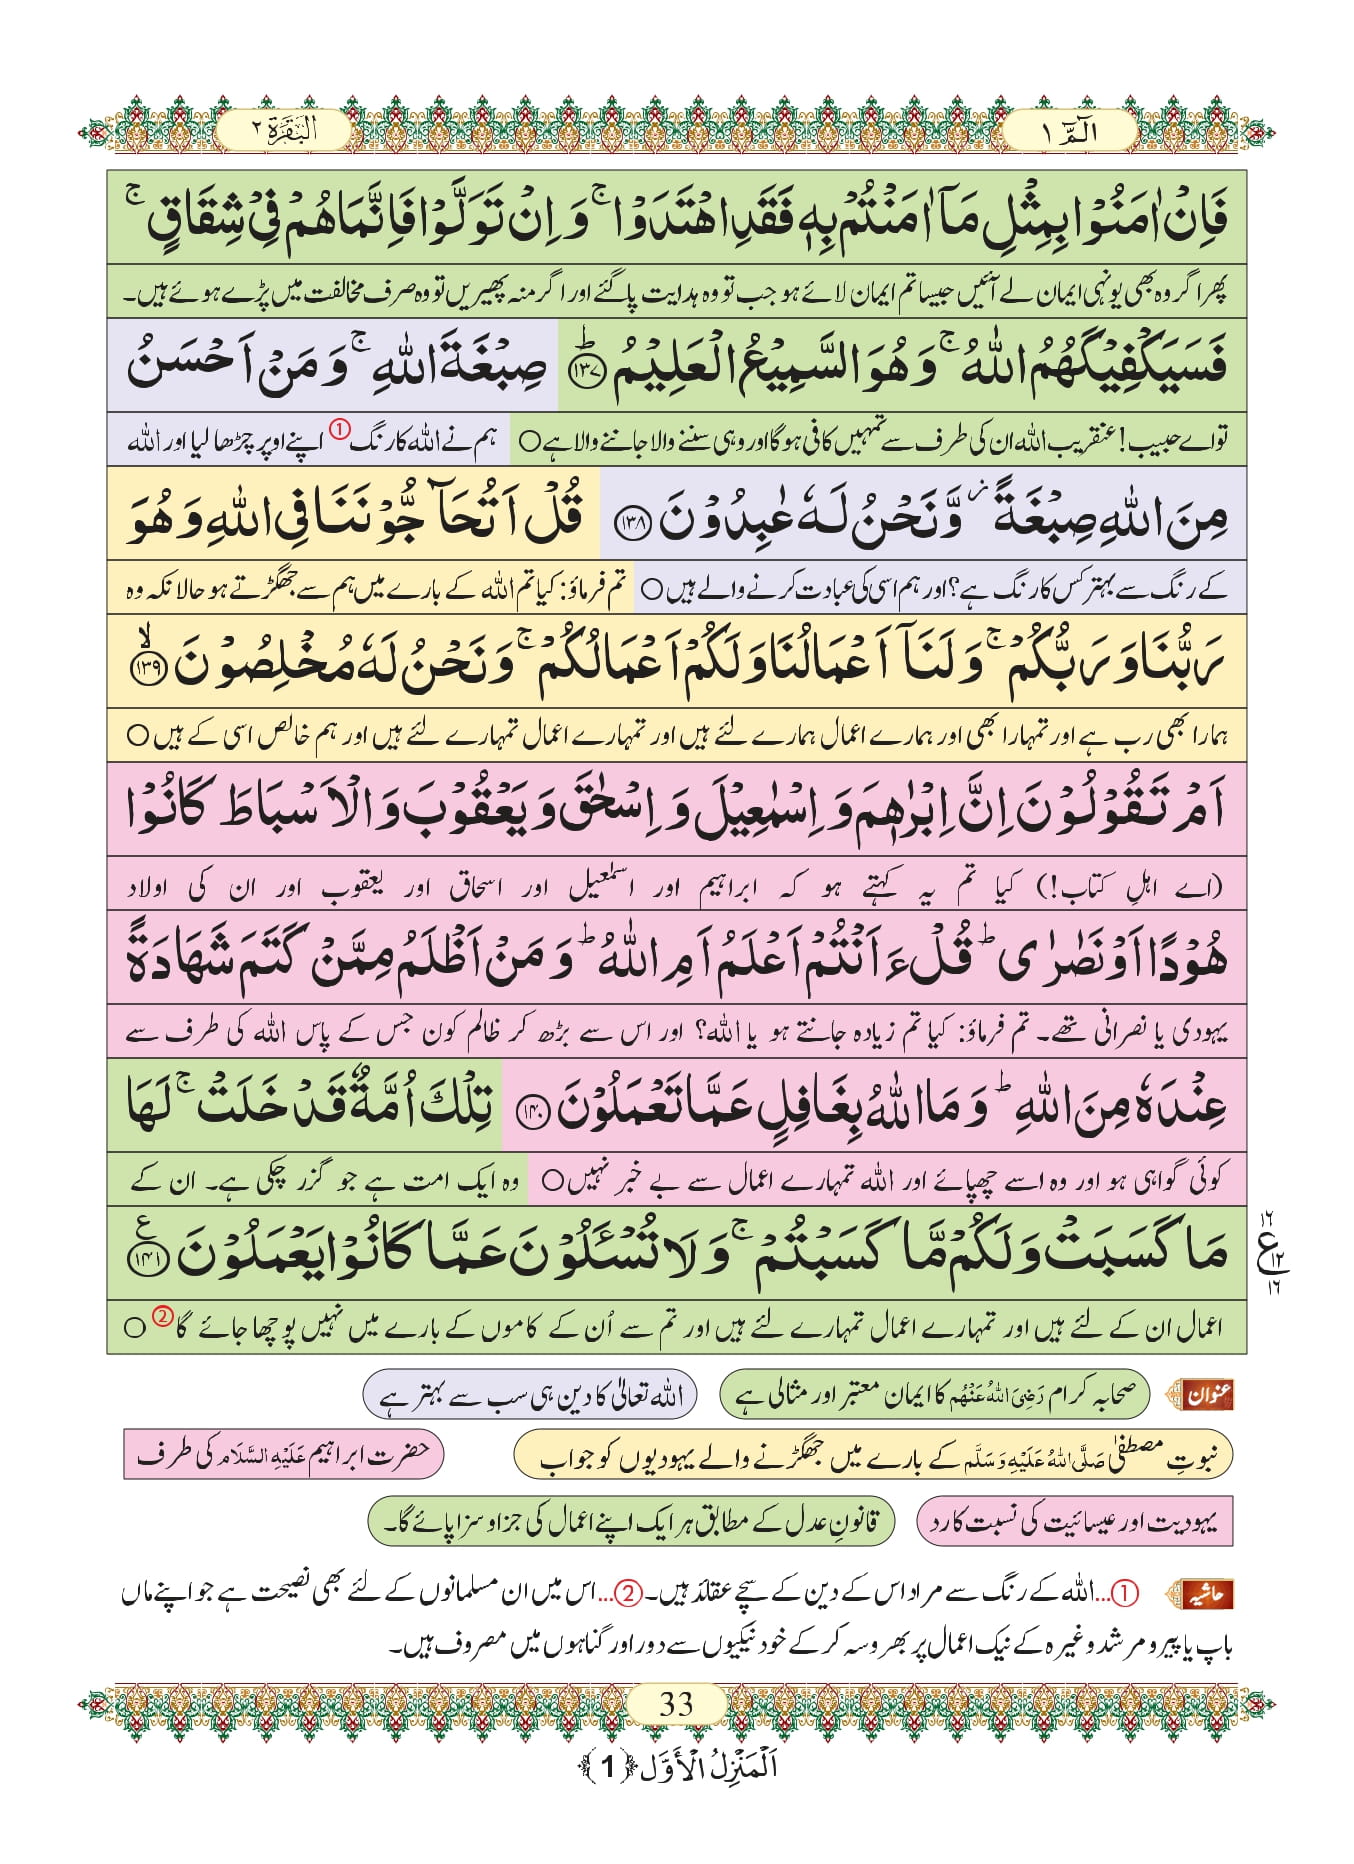 الٓمّٓ ١
البقرة ٢
فَاِنْ اٰمَنُوْا بِمِثْلِ مَاۤ اٰمَنْتُمْ بِهٖ فَقَدِ اهْتَدَوْاۚ وَ اِنْ تَوَلَّوْا فَاِنَّمَا هُمْ فِیْ شِقَاقٍۚ
پھر اگر وہ بھی یونہی ایمان لے آئیں جیسا تم ایمان لائے ہو جب تو وہ ہدایت پاگئے اور اگر منہ پھیریں تو وہ صرف مخالفت میں پڑے ہوئے ہیں۔
فَسَیَكْفِیْكَهُمُ اللّٰهُۚ وَ هُوَ السَّمِیْعُ الْعَلِیْمُؕ ۝۱۳۷ صِبْغَةَ اللّٰهِۚ وَ مَنْ اَحْسَنُ
تو اے حبیب! عنقریب اللہ ان کی طرف سے تمہیں کافی ہوگا اور وہی سننے والا جاننے والا ہے ○ ہم نے اللہ کا رنگ ① اپنے اوپر چڑھا لیا اور اللہ
مِنَ اللّٰهِ صِبْغَةً٘ وَّ نَحْنُ لَهٗ عٰبِدُوْنَ ۝۱۳۸ قُلْ اَتُحَآجُّوْنَنَا فِی اللّٰهِ وَ هُوَ
کے رنگ سے بہتر کس کا رنگ ہے؟ اور ہم اسی کی عبادت کرنے والے ہیں ○ تم فرماؤ: کیا تم اللہ کے بارے میں ہم سے جھگڑتے ہو حالانکہ وہ
رَبُّنَا وَ رَبُّكُمْۚ وَ لَنَاۤ اَعْمَالُنَا وَ لَكُمْ اَعْمَالُكُمْۚ وَ نَحْنُ لَهٗ مُخْلِصُوْنَۙ ۝۱۳۹
ہمارا بھی رب ہے اور تمہارا بھی اور ہمارے اعمال ہمارے لئے ہیں اور تمہارے اعمال تمہارے لئے ہیں اور ہم خالص اسی کے ہیں ○
اَمْ تَقُوْلُوْنَ اِنَّ اِبْرٰهٖمَ وَ اِسْمٰعِیْلَ وَ اِسْحٰقَ وَ یَعْقُوْبَ وَ الْاَسْبَاطَ كَانُوْا
(اے اہلِ کتاب!) کیا تم یہ کہتے ہو کہ ابراہیم اور اسمٰعیل اور اسحاق اور یعقوب اور ان کی اولاد
هُوْدًا اَوْ نَصٰرٰىؕ قُلْ ءَاَنْتُمْ اَعْلَمُ اَمِ اللّٰهُؕ وَ مَنْ اَظْلَمُ مِمَّنْ كَتَمَ شَهَادَةً
یہودی یا نصرانی تھے۔ تم فرماؤ: کیا تم زیادہ جانتے ہو یا اللہ؟ اور اس سے بڑھ کر ظالم کون جس کے پاس اللہ کی طرف سے
عِنْدَهٗ مِنَ اللّٰهِؕ وَ مَا اللّٰهُ بِغَافِلٍ عَمَّا تَعْمَلُوْنَ ۝۱۴۰ تِلْكَ اُمَّةٌ قَدْ خَلَتْۚ لَهَا
کوئی گواہی ہو اور وہ اسے چھپائے اور اللہ تمہارے اعمال سے بے خبر نہیں ○ وہ ایک امت ہے جو گزر چکی ہے۔ ان کے
مَا كَسَبَتْ وَ لَكُمْ مَّا كَسَبْتُمْۚ وَ لَا تُسْــٴَـلُوْنَ عَمَّا كَانُوْا یَعْمَلُوْنَ۠ ۝۱۴۱
۱۶ ع ۱۲ ۱۶
اعمال ان کے لئے ہیں اور تمہارے اعمال تمہارے لئے ہیں اور تم سے اُن کے کاموں کے بارے میں نہیں پوچھا جائے گا ② ○
عنوان صحابہ کرام رَضِیَ اللہُ عَنْہُم کا ایمان معتبر اور مثالی ہے اللہ تعالیٰ کا دین ہی سب سے بہتر ہے
نبوتِ مصطفیٰ صَلَّی اللہُ عَلَیْہِ وَسَلَّم کے بارے میں جھگڑنے والے یہودیوں کو جواب حضرت ابراہیم عَلَیْہِ السَّلَام کی طرف
یہودیت اور عیسائیت کی نسبت کا رد قانونِ عدل کے مطابق ہر ایک اپنے اعمال کی جزا و سزا پائے گا۔
حاشیہ ①...اللہ کے رنگ سے مراد اس کے دین کے سچے عقائد ہیں۔ ②...اس میں ان مسلمانوں کے لئے بھی نصیحت ہے جو اپنے ماں
باپ یا پیر و مرشد وغیرہ کے نیک اعمال پر بھروسہ کرکے خود نیکیوں سے دور اور گناہوں میں مصروف ہیں۔
33
اَلْمَنْزِلُ الْأَوَّل ﴿1﴾